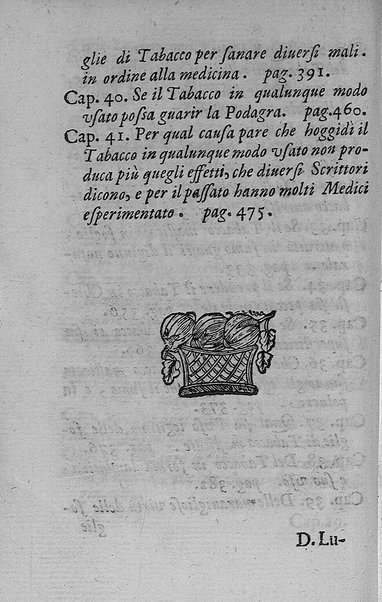 glie di Tabacco per sanare diversi mali.
in ordine alla medicina. pag. 391.
Cap. 40. Se il Tabacco in qualunque modo
vsato possa guarir la Podagra. pag.460.
Cap. 41. Per qual causa pare che hoggidì il
Tabacco in qualunque modo vsato non pro-
duca più quegli effetti, che diversi Scrittori
dicono, e per il passato hanno molti Medici
esperimentato. pag. 475.
D. Lu-